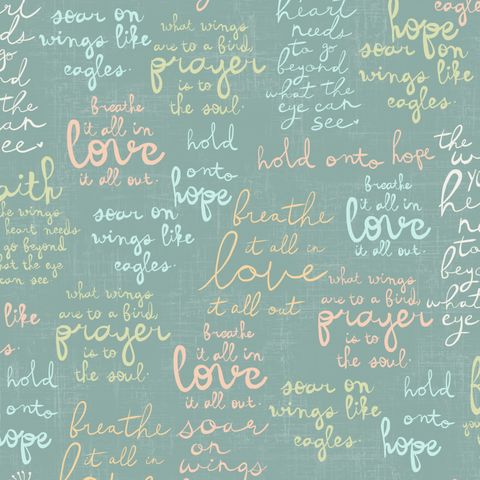 what wings
are to a bird,
prayer
is to
the soul.
heart
needs
to go
beyond
what the
eye can
see
hope
soar on
wings like
eagles.
soar on
wings like
eagles.
breathe
it all in
love
it all out.
hold
onto
hope
hold onto hope
the
eye
can
see
faith
the wings
heart needs
go beyond
what the eye
can see
soar on
wings like
eagles.
breathe
it all in
love
it all out
breathe
it all in
love
it all out.
the
heart
needs
to go
beyond
what
eye
what wings
are to a bird,
prayer
is to
the soul.
what wings
are to a bird,
prayer
is to
the soul.
like
breathe
it all in
love
it all out.
hold
onto
hope
soar on
wings like
eagles.
hold
onto
hope
breathe
it all in
soar
on
wings